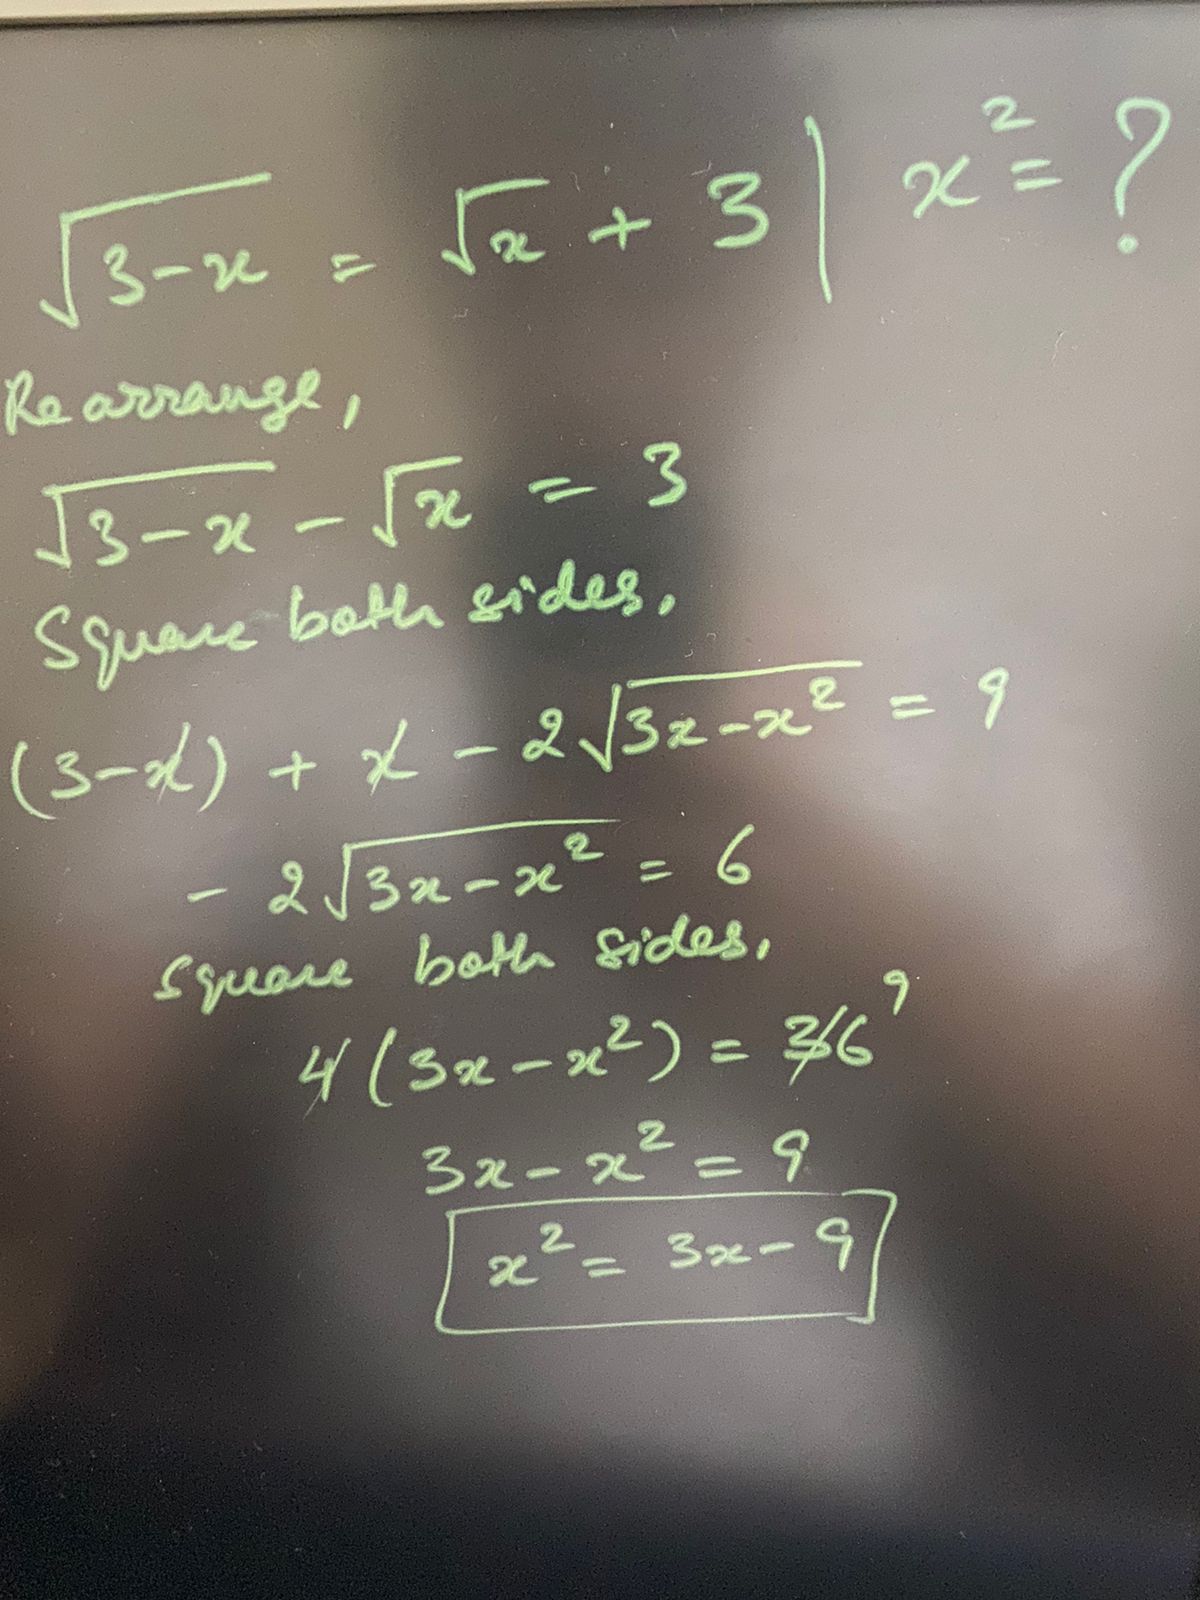 √(3-x) = √x + 3 | x² = ?
Rearrange,
√(3-x) - √x = 3
Square both sides,
(3-x) + x - 2√(3x-x²) = 9
- 2√(3x-x²) = 6
Square both sides,
4(3x-x²) = 36 9
3x - x² = 9
x² = 3x - 9